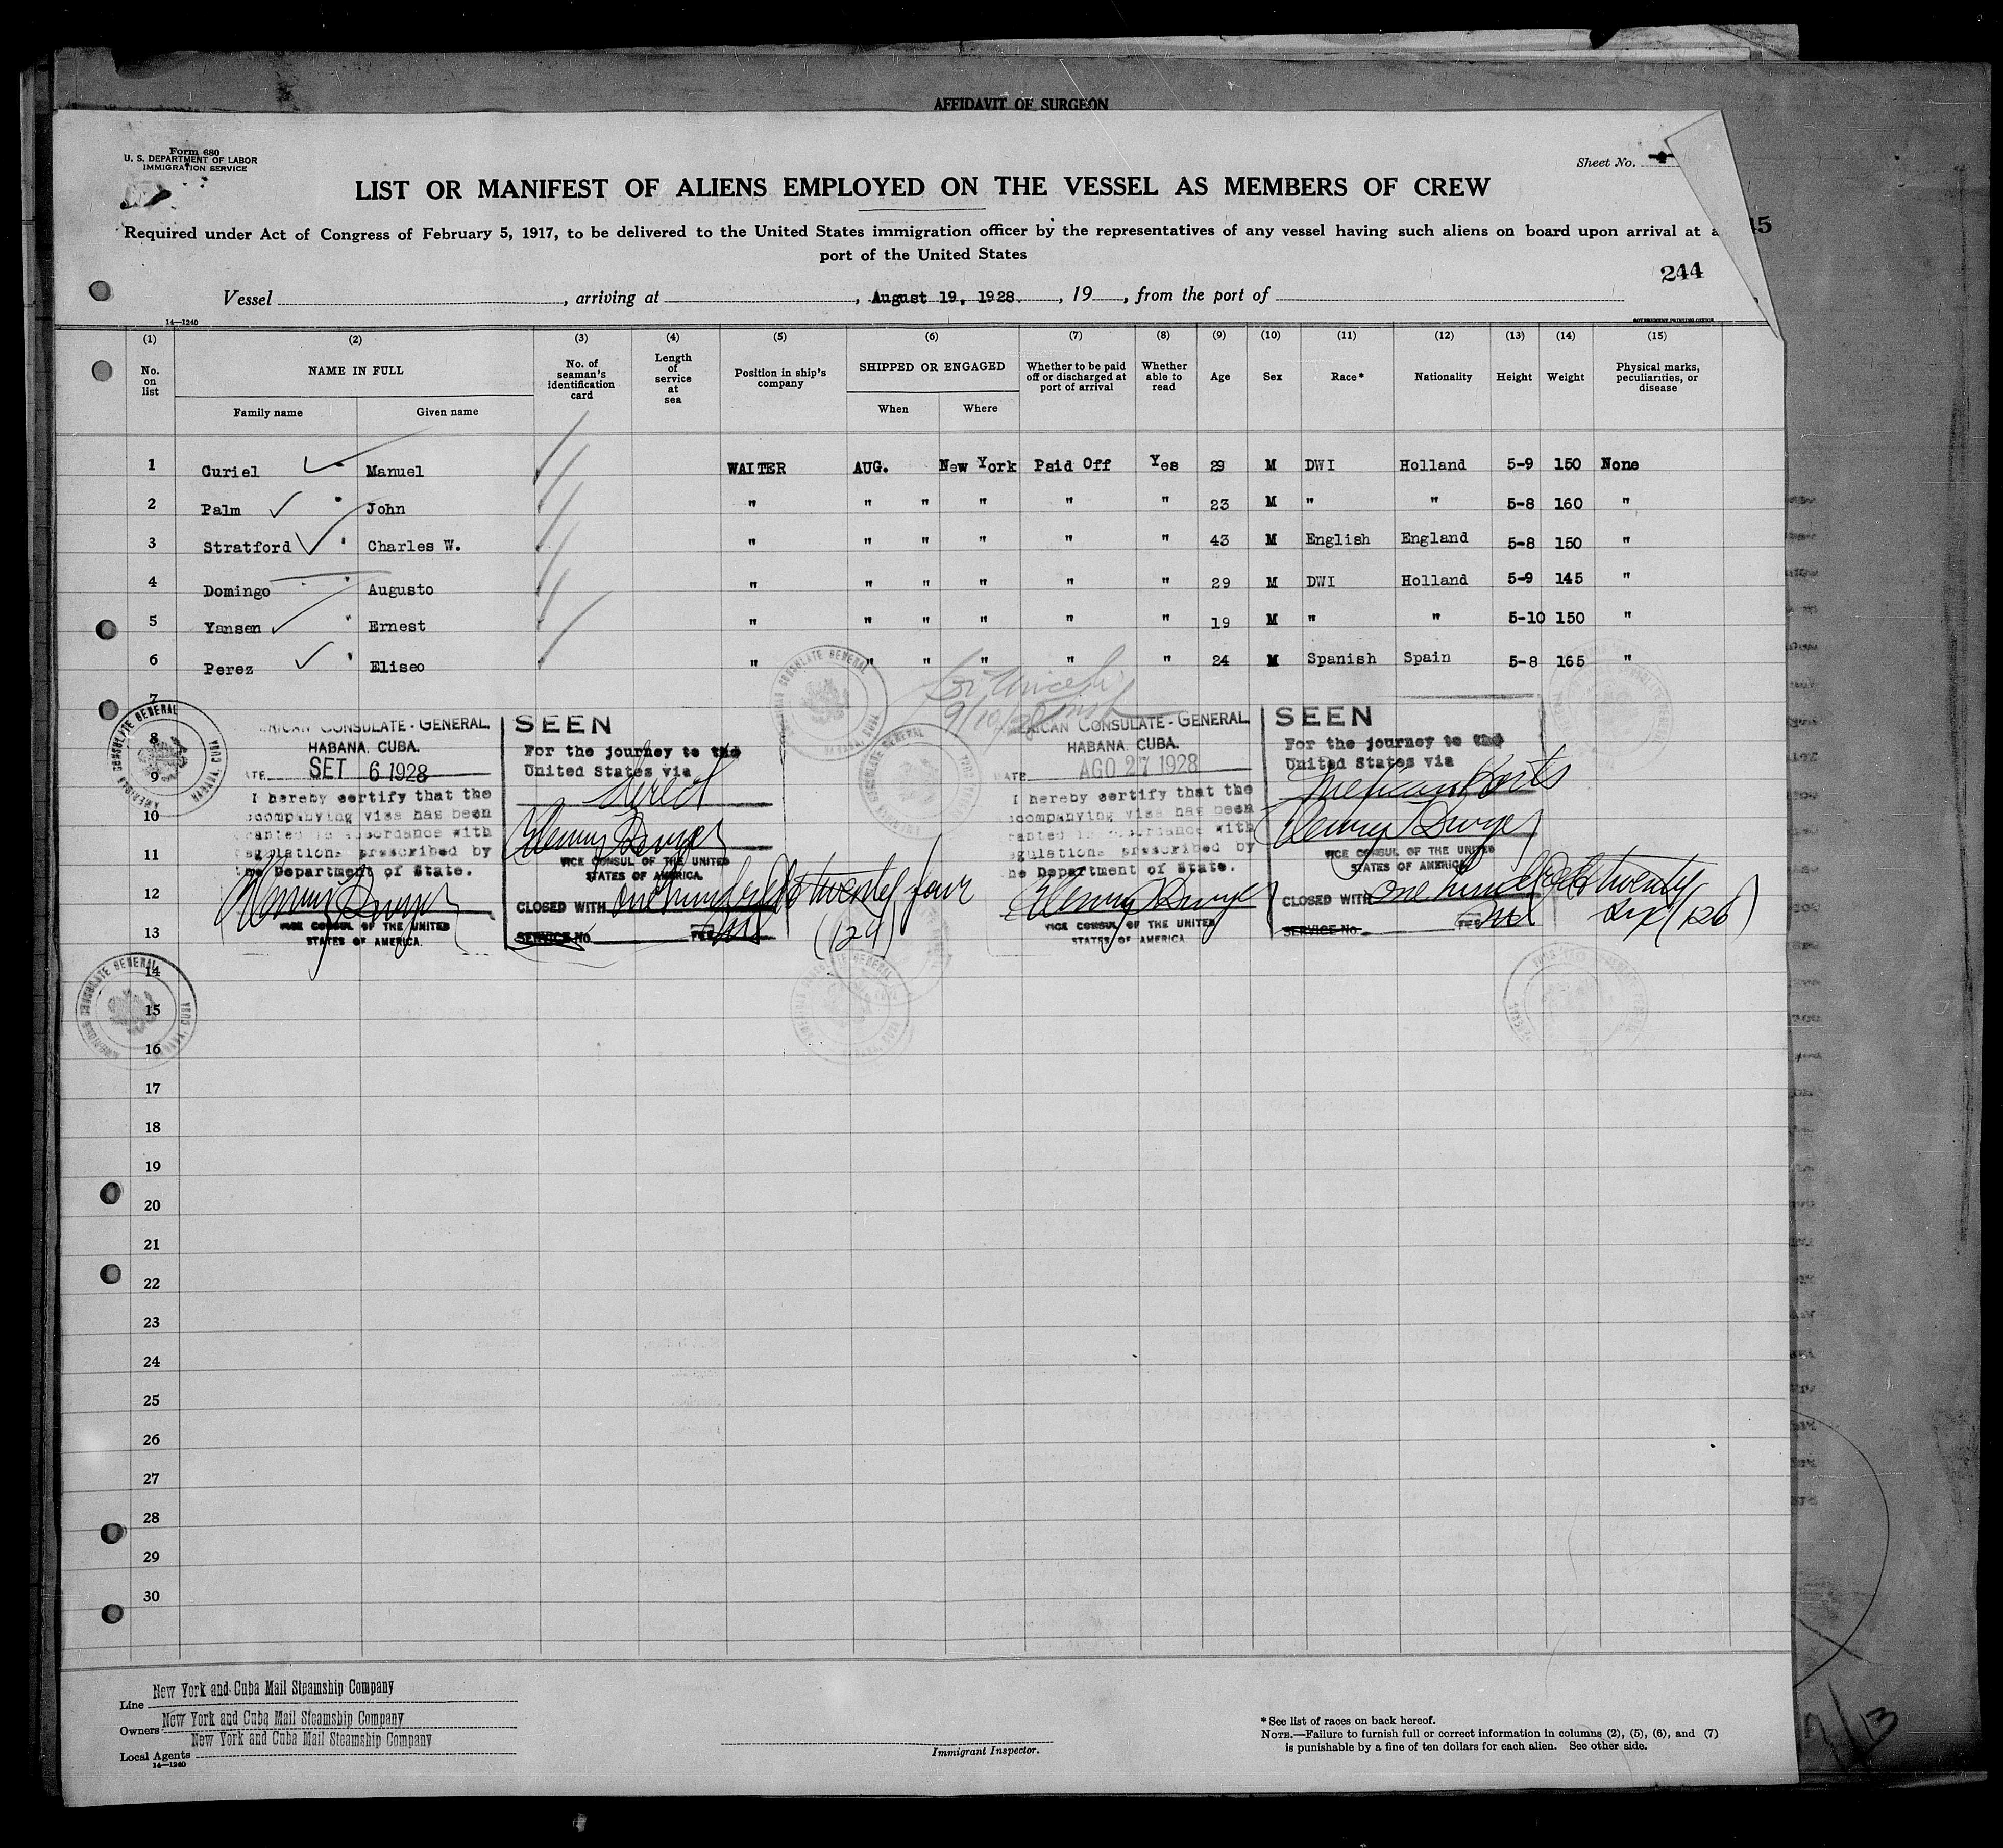 AFFIDAVIT OF SURGEON
Form 680
U. S. DEPARTMENT OF LABOR
IMMIGRATION SERVICE
Sheet No.
LIST OR MANIFEST OF ALIENS EMPLOYED ON THE VESSEL AS MEMBERS OF CREW
Required under Act of Congress of February 5, 1917, to be delivered to the United States immigration officer by the representatives of any vessel having such aliens on board upon arrival at a
port of the United States
15
244
Vessel , arriving at , August 19, 1928. , 19 , from the port of
14—1240 GOVERNMENT PRINTING OFFICE
(1) (2) (3) (4) (5) (6) (7) (8) (9) (10) (11) (12) (13) (14) (15)
No. on list NAME IN FULL No. of seaman's identification card Length of service at sea Position in ship's company SHIPPED OR ENGAGED Whether to be paid off or discharged at port of arrival Whether able to read Age Sex Race* Nationality Height Weight Physical marks, peculiarities, or disease
Family name Given name When Where
1 Curiel Manuel WAITER AUG. New York Paid Off Yes 29 M DWI Holland 5-9 150 None
2 Palm " John " " " " " " 23 M " " 5-8 160 "
3 Stratford " Charles W. " " " " " " 43 M English England 5-8 150 "
4 Domingo " Augusto " " " " " " 29 M DWI Holland 5-9 145 "
5 Yansen " Ernest " " " " " " 19 M " " 5-10 150 "
6 Perez " Eliseo " " " " " " 24 M Spanish Spain 5-8 165 "
7
8
9
10
11
12
13
RICAN CONSULATE-GENERAL
HABANA, CUBA.
ATE SET 6 1928
I hereby certify that the
ccompanying visa has been
ranted in accordance with
egulations prescribed by
he Department of State.
VICE CONSUL OF THE UNITED
STATES OF AMERICA.
SEEN
For the journey to the
United States via
direct
VICE CONSUL OF THE UNITED
STATES OF AMERICA.
CLOSED WITH one hundred & twenty four
(124)
SERVICE No. FEE
9/10/28
RICAN CONSULATE-GENERAL
HABANA, CUBA.
ATE AGO 27 1928
I hereby certify that the
ccompanying visa has been
ranted in accordance with
egulations prescribed by
he Department of State.
VICE CONSUL OF THE UNITED
STATES OF AMERICA
SEEN
For the journey to the
United States via
Mexican Ports
VICE CONSUL OF THE UNITED
STATES OF AMERICA
CLOSED WITH one hundred & twenty
six (126)
SERVICE No. FEE
AMERICAN CONSULATE GENERAL
HABANA, CUBA
14
15
16
17
18
19
20
21
22
23
24
25
26
27
28
29
30
Line New York and Cuba Mail Steamship Company
Owners New York and Cuba Mail Steamship Company
Local Agents New York and Cuba Mail Steamship Company
14—1240
Immigrant Inspector.
* See list of races on back hereof.
NOTE.—Failure to furnish full or correct information in columns (2), (5), (6), and (7)
is punishable by a fine of ten dollars for each alien. See other side.